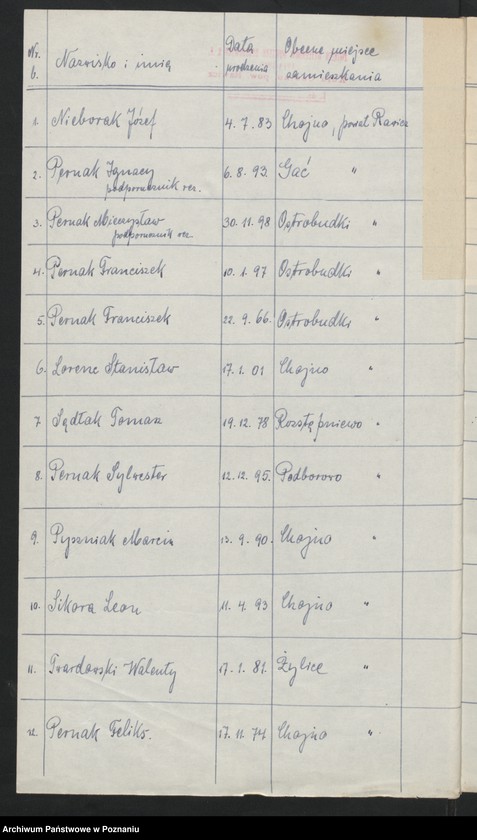 Nr. Nazwisko i imię Data Obecne miejsce
b. urodzenia zamieszkania
1. Nieborak Józef 4.7.83 Chojno, powiat Rawicz
2. Pernak Ignacy 6.8.93. Gać "
podporucznik rez.
3. Pernak Mieczysław 30.11.98 Ostrobudki "
podporucznik rez.
4. Pernak Franciszek 10.1.97 Ostrobudki "
5. Pernak Franciszek 22.9.66. Ostrobudki "
6. Lorenc Stanisław 17.1.01 Chojno "
7. Sędłak Tomasz 19.12.78 Rozstępniewo "
8. Pernak Sylwester 12.12.95. Podborowo "
9. Pyszniak Marcin 13.9.90. Chojno "
10. Sikora Leon 11.4.93 Chojno "
11. Twardowski Walenty 17.1.81. Żylice "
12. Pernak Feliks. 17.11.74 Chojno "
Archiwum Państwowe w Poznaniu